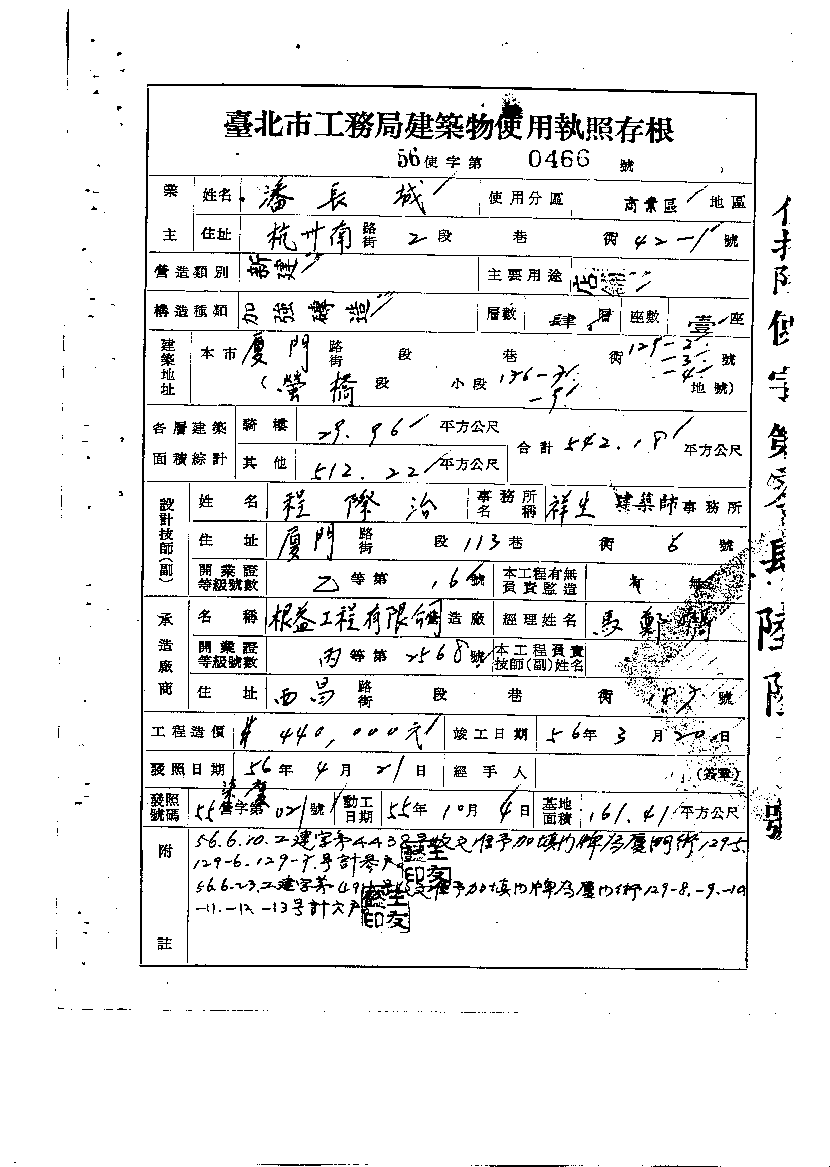 臺北市工務局建築物使用執照存根
56使字第 0466 號
業主 姓名 潘長城 使用分區 商業區 地區
住址 杭州南 路街 2 段 巷 街 42-1 號
營造類別 新建 主要用途 店舖
構造種類 加強磚造 層數 肆層 座數 壹座
建築地址 本市 廈門 路街 段 巷 街 129-2 -3 -4 號
(螢橋 段 小段 -9 地號)
各層建築面積綜計 騎樓 29.96 平方公尺 合計 542.18 平方公尺
其他 512.22 平方公尺
設計技師(副) 姓名 程際治 事務所名稱 祥生 建築師事務所
住址 廈門 路街 段 113 巷 街 6 號
開業證等級號數 乙等第 166 號 本工程有無負責監造 有 無
承造廠商 名稱 根益工程有限公司 營造廠 經理姓名 馬鄭
開業證等級號數 丙等第 2568 號 本工程負責技師(副)姓名
住址 西昌 路街 段 巷 街 號
工程造價 # 440,000元 竣工日期 56年 3月 20日
發照日期 56年 4月 21日 經手人 (簽章)
發照號碼 55 營字第 021 號 動工日期 55年 10月 4日 基地面積 161.41 平方公尺
附註
56.6.10.工建字第4438號收文准予加填門牌為廈門街129-5.
129-6.129-7.号計參戶
56.6.23.工建字第 收文准予加填門牌為廈門街129-8.-9.-10
-11.-12.-13号計六戶